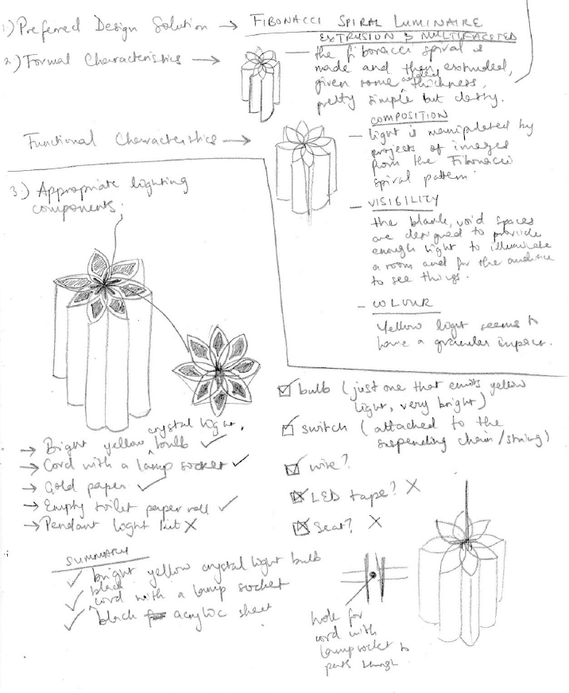 1) Preferred Design Solution → FIBONACCI SPIRAL LUMINAIRE
2) Formal Characteristics →
EXTRUSION & MULTIFACETED
— the fibonacci spiral is
made and then extruded,
given some thickness,
pretty simple but classy.
Functional Characteristics →
COMPOSITION
— light is manipulated by
projects of images
from the Fibonacci
spiral pattern.
— VISIBILITY
the blank, void spaces
are designed to provide
enough light to illuminate
a room and for the audience
to see things.
— COLOUR
Yellow light seems to
have a greater impact.
3.) Appropriate lighting
components.
→ Bright yellow crystal light bulb ✓
→ Cord with a lamp socket ✓
→ Gold paper ✓
→ Empty toilet paper roll ✓
→ Pendant light kit X
☑ bulb (just one that emits yellow
light, very bright)
☑ switch (attached to the
suspending chain/string)
☑ wire?
☒ LED tape? X
☒ Seat? X
SUMMARY
✓ bright yellow crystal light bulb
✓ black cord with a lamp socket
✓ black acrylic sheet
hole for
cord with
lamp socket to
pass through.